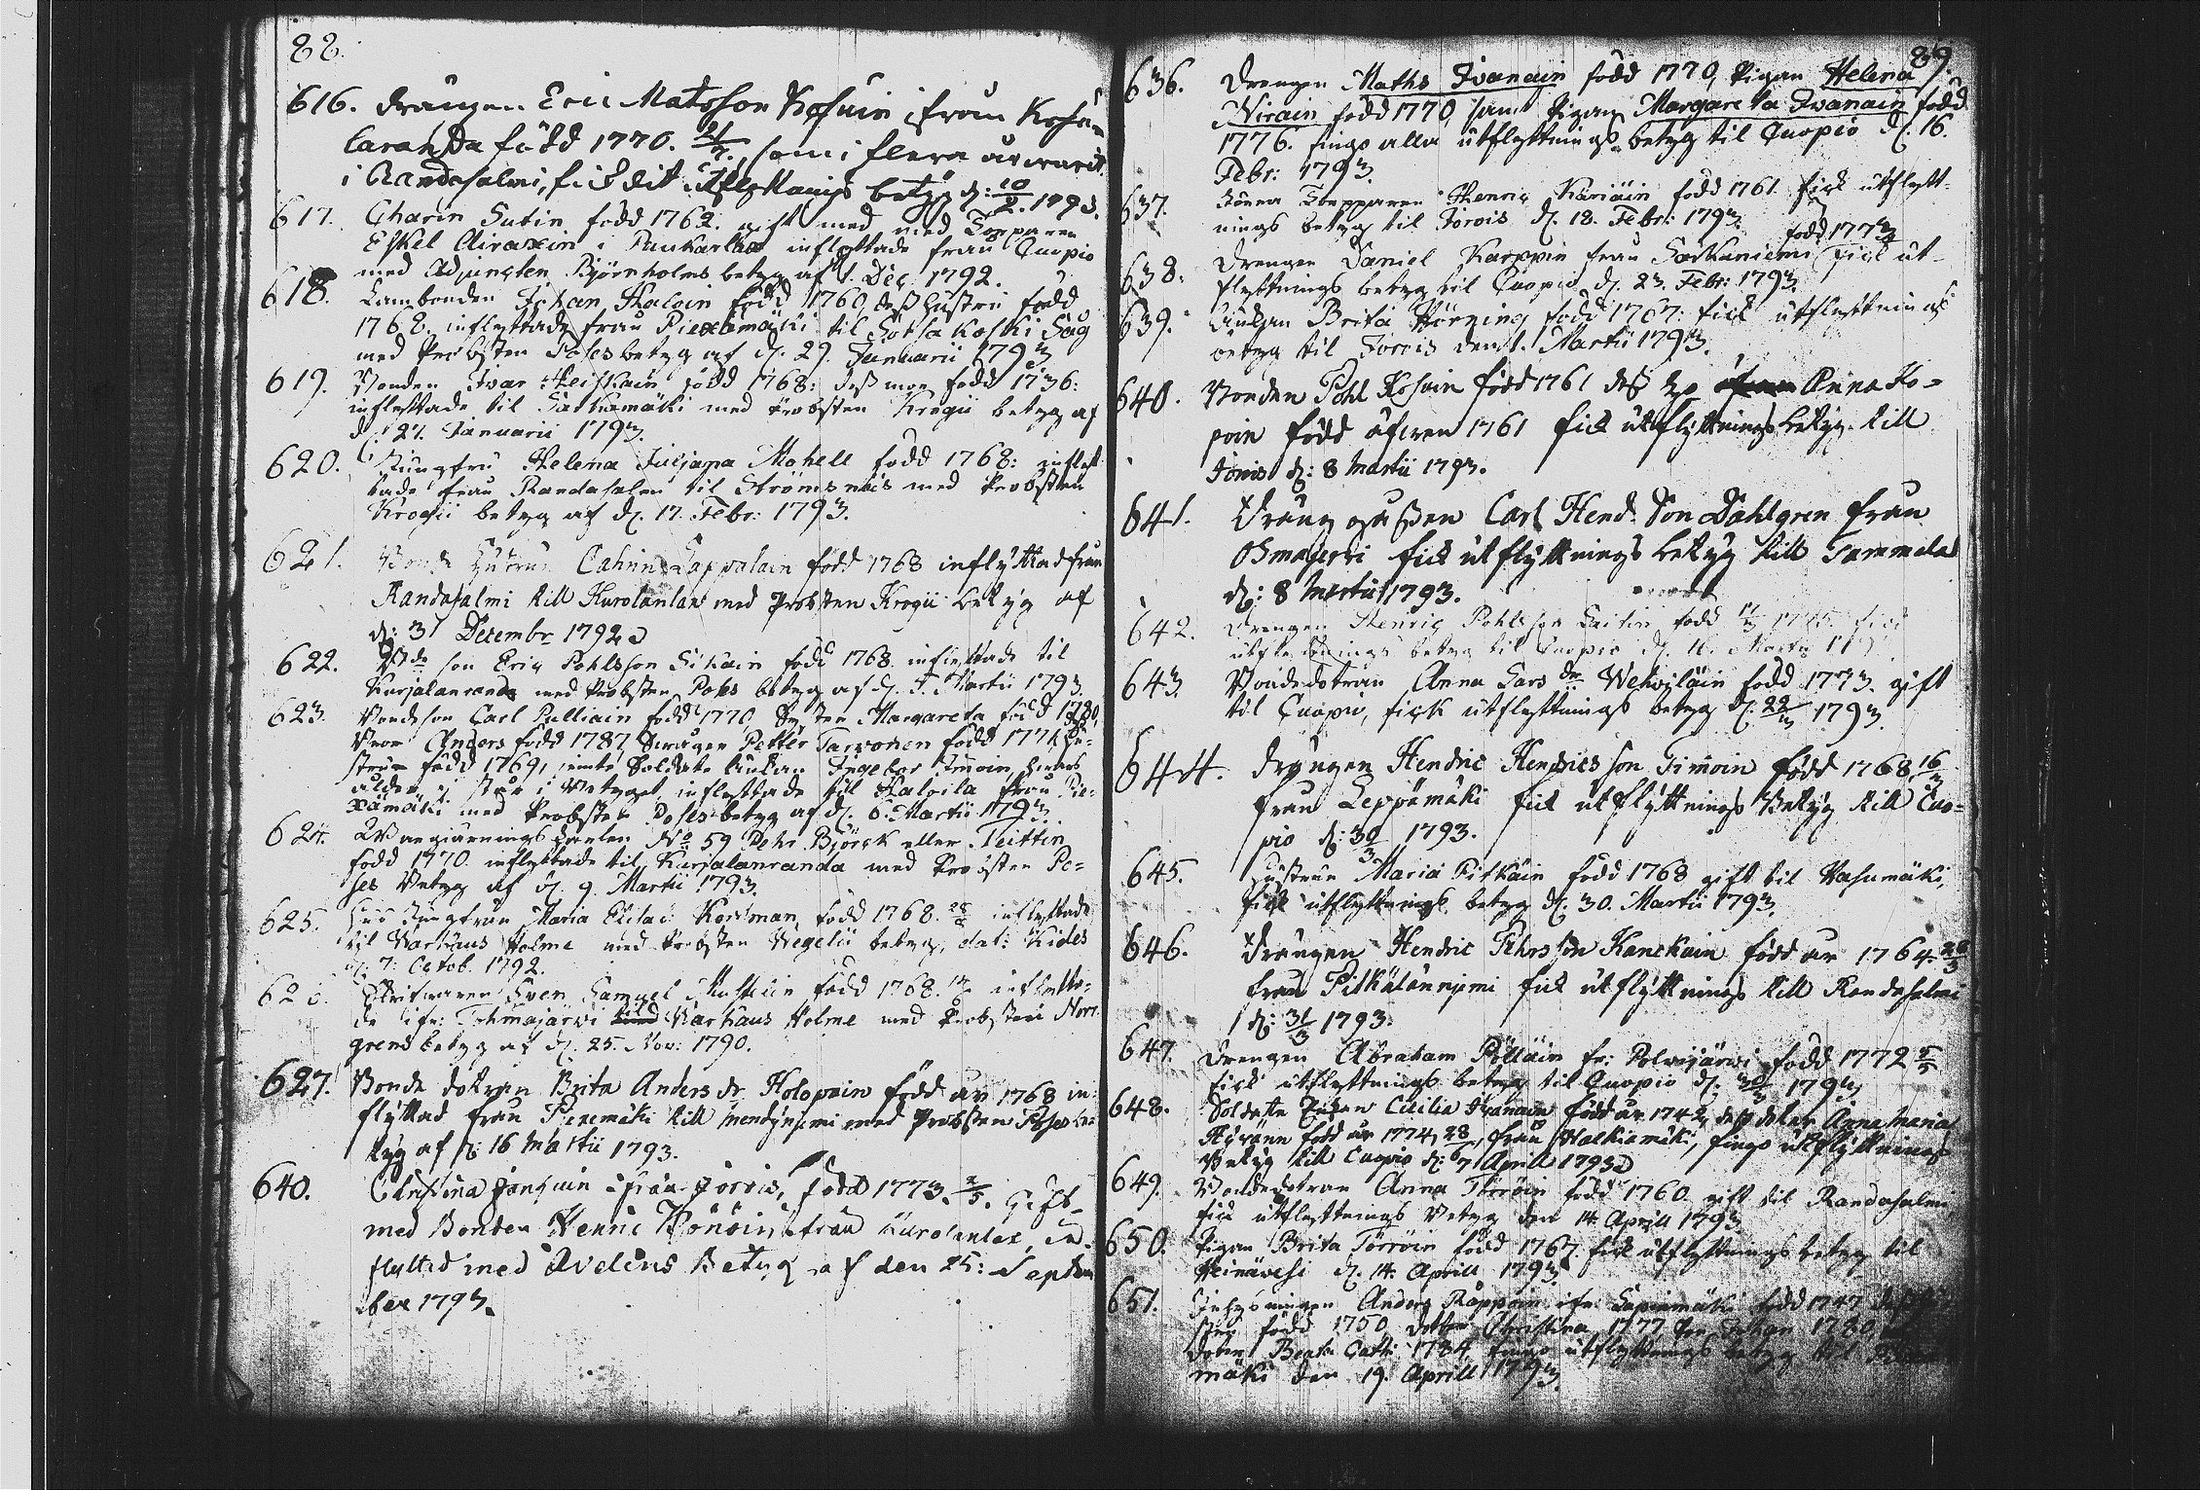 88.
616. Drängen Eric Matsson Kosuin ifrån Kosu-
laranda född 1770. 21/7. som i flera år warit
i Randasalmi, fick dit utflyttnings betyg d: 10/2. 1793.
617. Charin Sutin född 1762. gift med med Torparen
Eskel Airaxin i Punkarlax inflyttade från Cuopio
med Adjuncten Björnholms betyg af 1. Dec. 1792.
618. Landbonden Johan Haloin född 1760 dess hustru född
1768. inflyttade från Piexämäki til Sorsakoski Såg
med Probsten Poses betyg af d. 29. Januarii 1793
619. Bonden Ivar Heiskain född 1768: dess mor född 1736:
inflyttade til Sarkamäki med Probsten Krogii betyg af
d. 27. Januarii 1793.
620. Jungfru Helena Juliana Mohell född 1768: inflyt-
tade från Randasalmi til Strömsnäs med Probsten
Krogii betyg af d. 17. Febr: 1793.
621. Bonde Hustrun Cahrin Lappalain född 1768 inflyttad från
Randasalmi till Kurolanlax med Probsten Krogii betyg af
d: 31 Decembr 1792
622. Bde son Eric Pohlsson Sikain född 1768 inflyttade til
Kurjalanranda med Probsten Poses betyg af d. 7. Martii 1793.
623. Bondeson Carl Pulliain född 1770, Syster Margareta född 1780,
Bror Anders född 1787, Swågern Petter Tarvonen född 1771, hu-
strun född 1769, samt Soldate änkan Ingebor Immoin, hvars
ålder ej står i betyget, inflyttade til Haloila från Pie-
xämäki med Probsten Poses betyg af d. 6. Martii 1793.
624. Wargiärnings karlen No 59 Pehr Björck eller Teittin
född 1770. inflyttade til Kurjalanranda med Probsten Po-
ses betyg af d. 9. Martii 1793.
625. Jungfrun Maria Elisab: Korsman född 1768. inflyttade
til Warkaus Holme med Probsten Wegelii betyg, dat: Kides
d. 7. Octob. 1792.
626. Skrifwaren Sven Samuel född 1768. inflytta-
de ifr: Tohmajärwi til Warkaus Holme med Probsten Norr-
grens betyg af d. 25. Nov: 1790.
627. Bonde dotran Brita Anders dr Holopain född år 1768 in-
flyttad från Piexemäki till Mendyniemi med Probsten Poses be-
tyg af d: 16 Martii 1793.
640. Christina Jonsuin ifrån Jorois, född 1773. 2/5. Gift
med Bonden Henric Könöin från Kurolanlax, in-
flyttad med Avelens Betyg af den 25: Septem
ber 1793.
89.
636. Drengen Maths Ivanain född 1770, Pigan Helena
Nirain född 1770, samt Pigan Margareta Ivanain född
1776. fingo alla utflyttnings betyg til Cuopio d. 16.
Febr: 1793.
637. Förra Torpparen Henric Käriäin född 1761. fick utflytt-
nings betyg til Jorois d. 18. Febr: 1793.
född 1773
638. Drengen Daniel Karppin från Sarkaniemi fick ut-
flyttnings betyg til Cuopio d. 23. Febr: 1793.
639. Änkan Brita Hörning född 1767: fick utflyttnings
betyg til Jorois den 1. Martii 1793.
640. Bonden Pohl Kosoin född 1761 dess h. Anna Ko-
soin född äfwen 1761 fick utflyttnings betyg till
Jorois d: 8 Martii 1793.
641. Dräng gossen Carl Hend. Son Dahlgren från
Osmajerwi fick utflyttnings betyg till Tammela
d: 8 Martii 1793.
642. Drengen Henric Pohlsson Laitin född fick
utflyttnings betyg til Cuopio d. 16. Martii
643. Bondedotran Anna Lars dr Wehviläin född 1773. gift
til Cuopio, fick utflyttnings betyg d. 22/3 1793
644. Drängen Hendric Hendricsson Timoin född 1768 16/
från Leppämäki fick utflyttnings Betyg till Cuo-
pio d: 30/3 1793.
645. Hustrun Maria Pitkäin född 1768 gift til Vasumäki,
fick utflyttnings betyg d. 30. Martii 1793.
646. Drängen Hendric Pehrsson Kanckain född år 1764.
från Pitkälänniemi fick utflyttnings till Randasalmi
d: 31/3 1793.
647. Drengen Abraham Pölläin fr: Polwijärwi född 1772
fick utflyttnings betyg til Cuopio d. 30/3 1793
648. Soldate Enkan Cicilia Ivanain född år 1742, dess dotter Anna Maria
Hyränn född år 1774, 28/, från Halkiamäki, fingo utflyttnings
Betyg till Cuopio d: 7 Aprill 1793
649. Bondedotran Anna Törröin född 1760 gift til Randasalmi
fick utflyttnings Betyg den 14 Aprill 1793
650. Pigan Brita Törröin född 1767. fick utflyttnings betyg til
Heinävesi d. 14. Aprill 1793.
651. Inhysningen Anders Räppain ifr: Lapinmäki född 1747 dess hu-
stru född 1750 dotter Christina 1777 son Johan 1780
doter Beata Catri 1784 fingo utflyttnings betyg til
mäki den 19. Aprill 1793.